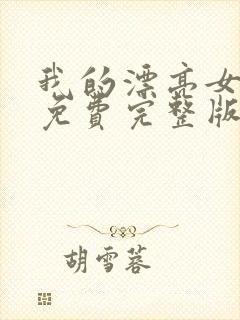 我的漂亮女
免费完整版
胡雪蓉